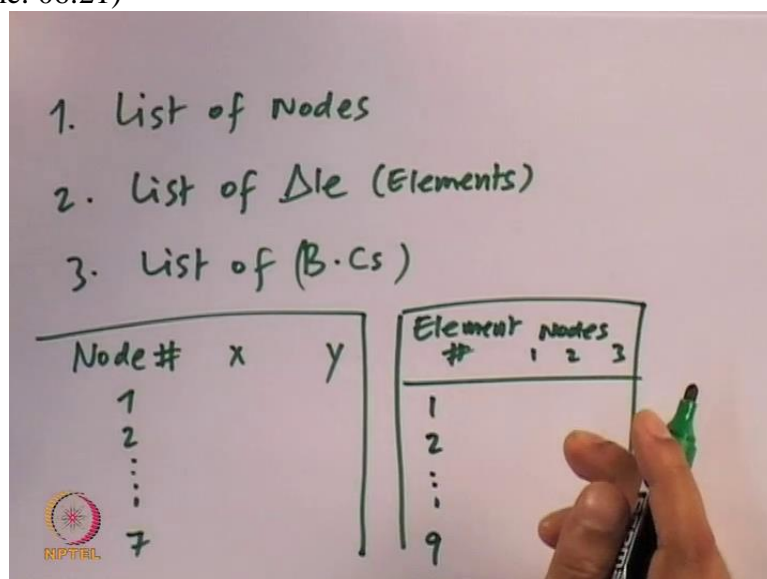 ne: 08:21)
1. List of Nodes
2. List of Δle (Elements)
3. List of (B.Cs)
Node # x y
1
2
7
Element Nodes
# 1 2 3
1
2
9
NPTEL